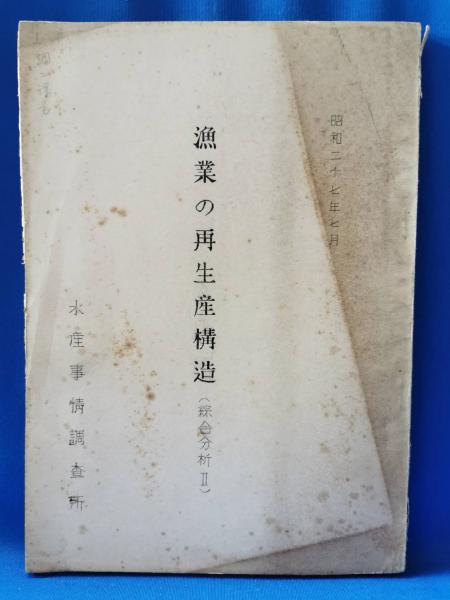 昭和二十七年七月
漁業の再生産構造
(綜合分析Ⅱ)
水産事情調査所